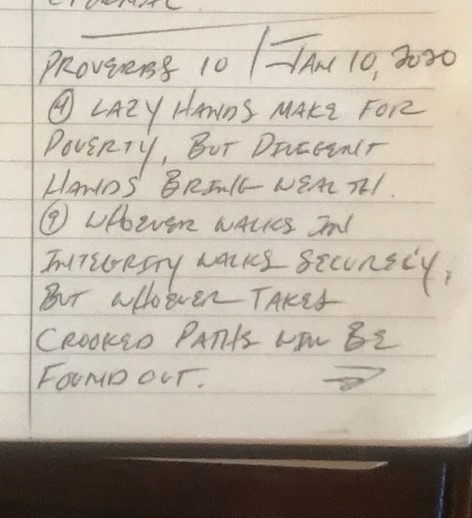 PROVERBS 10 / JAN 10, 2020
④ LAZY HANDS MAKE FOR
POVERTY, BUT DILIGENT
HANDS BRING WEALTH.
⑨ WHOEVER WALKS IN
INTEGRITY WALKS SECURELY,
BUT WHOEVER TAKES
CROOKED PATHS WILL BE
FOUND OUT. →